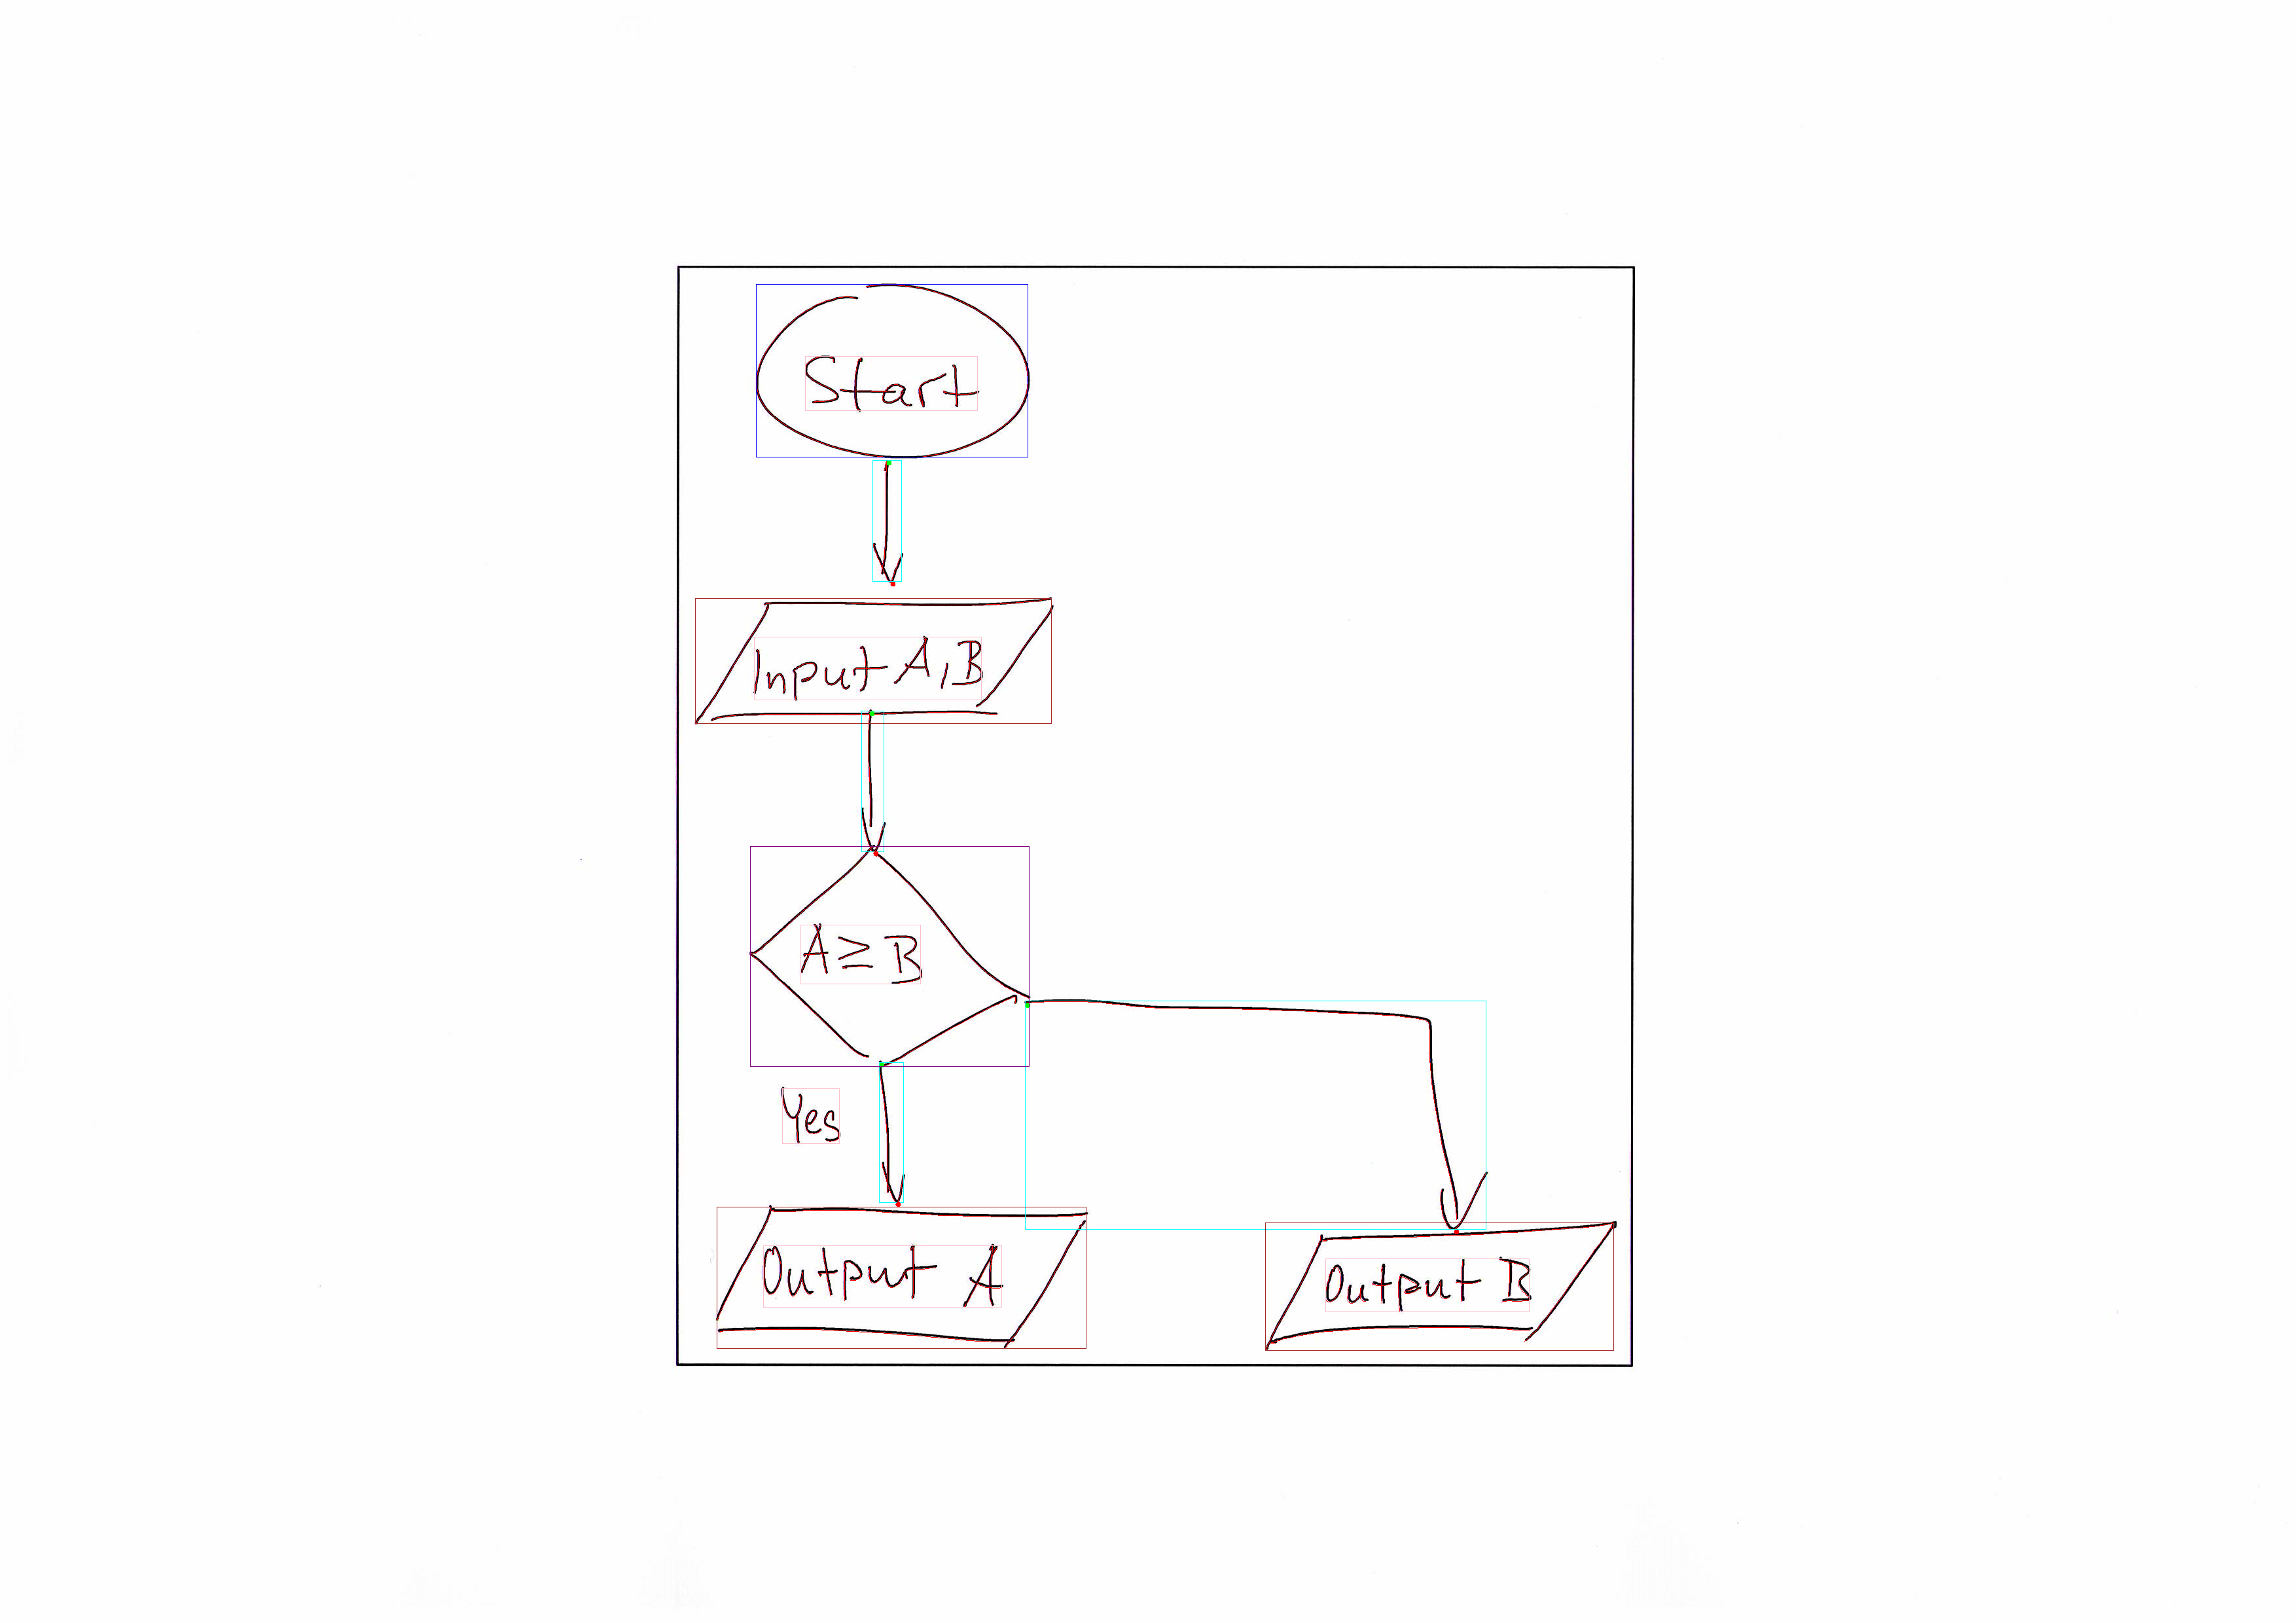 Start
Input A,B
A≥B
Yes
Output A
Output B